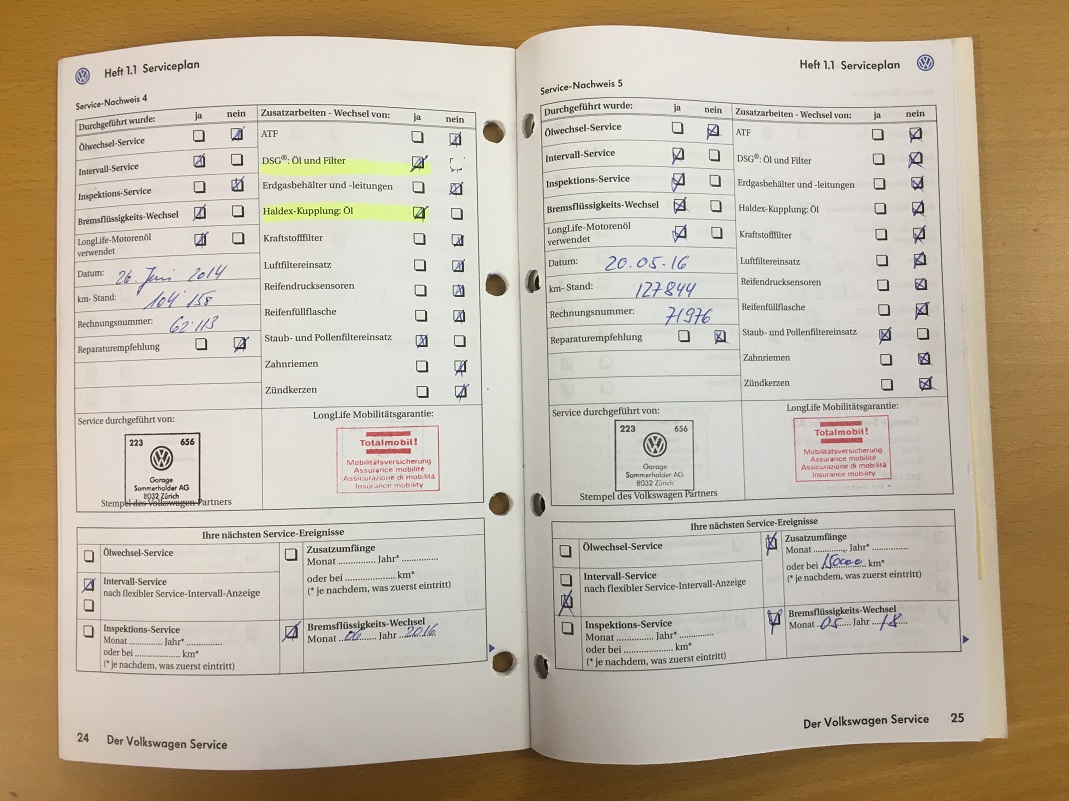 Heft 1.1 Serviceplan
Service-Nachweis 4
Durchgeführt wurde: ja nein
Ölwechsel-Service
Intervall-Service
Inspektions-Service
Bremsflüssigkeits-Wechsel
LongLife-Motorenöl
verwendet
Datum: 26. Juni 2014
km- Stand: 104 158
Rechnungsnummer: 62 113
Reparaturempfehlung
Zusatzarbeiten - Wechsel von: ja nein
ATF
DSG®: Öl und Filter
Erdgasbehälter und -leitungen
Haldex-Kupplung: Öl
Kraftstofffilter
Luftfiltereinsatz
Reifendrucksensoren
Reifenfüllflasche
Staub- und Pollenfiltereinsatz
Zahnriemen
Zündkerzen
Service durchgeführt von:
223 656
Garage
Sommerhalder AG
8032 Zürich
Stempel des Volkswagen Partners
LongLife Mobilitätsgarantie:
Totalmobil!
Mobilitätsversicherung
Assurance mobilité
Assicurazione di mobilità
Insurance mobility
Ihre nächsten Service-Ereignisse
Ölwechsel-Service
Intervall-Service
nach flexibler Service-Intervall-Anzeige
Inspektions-Service
Monat ............ Jahr* ..............
oder bei ..................... km*
(* je nachdem, was zuerst eintritt)
Zusatzumfänge
Monat .............. Jahr* ..............
oder bei ..................... km*
(* je nachdem, was zuerst eintritt)
Bremsflüssigkeits-Wechsel
Monat 06 Jahr 2016
24 Der Volkswagen Service
Heft 1.1 Serviceplan
Service-Nachweis 5
Durchgeführt wurde: ja nein
Ölwechsel-Service
Intervall-Service
Inspektions-Service
Bremsflüssigkeits-Wechsel
LongLife-Motorenöl
verwendet
Datum: 20.05.16
km- Stand: 127844
Rechnungsnummer: 71976
Reparaturempfehlung
Zusatzarbeiten - Wechsel von: ja nein
ATF
DSG®: Öl und Filter
Erdgasbehälter und -leitungen
Haldex-Kupplung: Öl
Kraftstofffilter
Luftfiltereinsatz
Reifendrucksensoren
Reifenfüllflasche
Staub- und Pollenfiltereinsatz
Zahnriemen
Zündkerzen
Service durchgeführt von:
223 656
Garage
Sommerhalder AG
8032 Zürich
Stempel des Volkswagen Partners
LongLife Mobilitätsgarantie:
Totalmobil!
Mobilitätsversicherung
Assurance mobilité
Assicurazione di mobilità
Insurance mobility
Ihre nächsten Service-Ereignisse
Ölwechsel-Service
Intervall-Service
nach flexibler Service-Intervall-Anzeige
Inspektions-Service
Monat ............ Jahr* ..............
oder bei ..................... km*
(* je nachdem, was zuerst eintritt)
Zusatzumfänge
Monat ............ Jahr* ..............
oder bei 150000 km*
(* je nachdem, was zuerst eintritt)
Bremsflüssigkeits-Wechsel
Monat 05 Jahr 18
Der Volkswagen Service 25